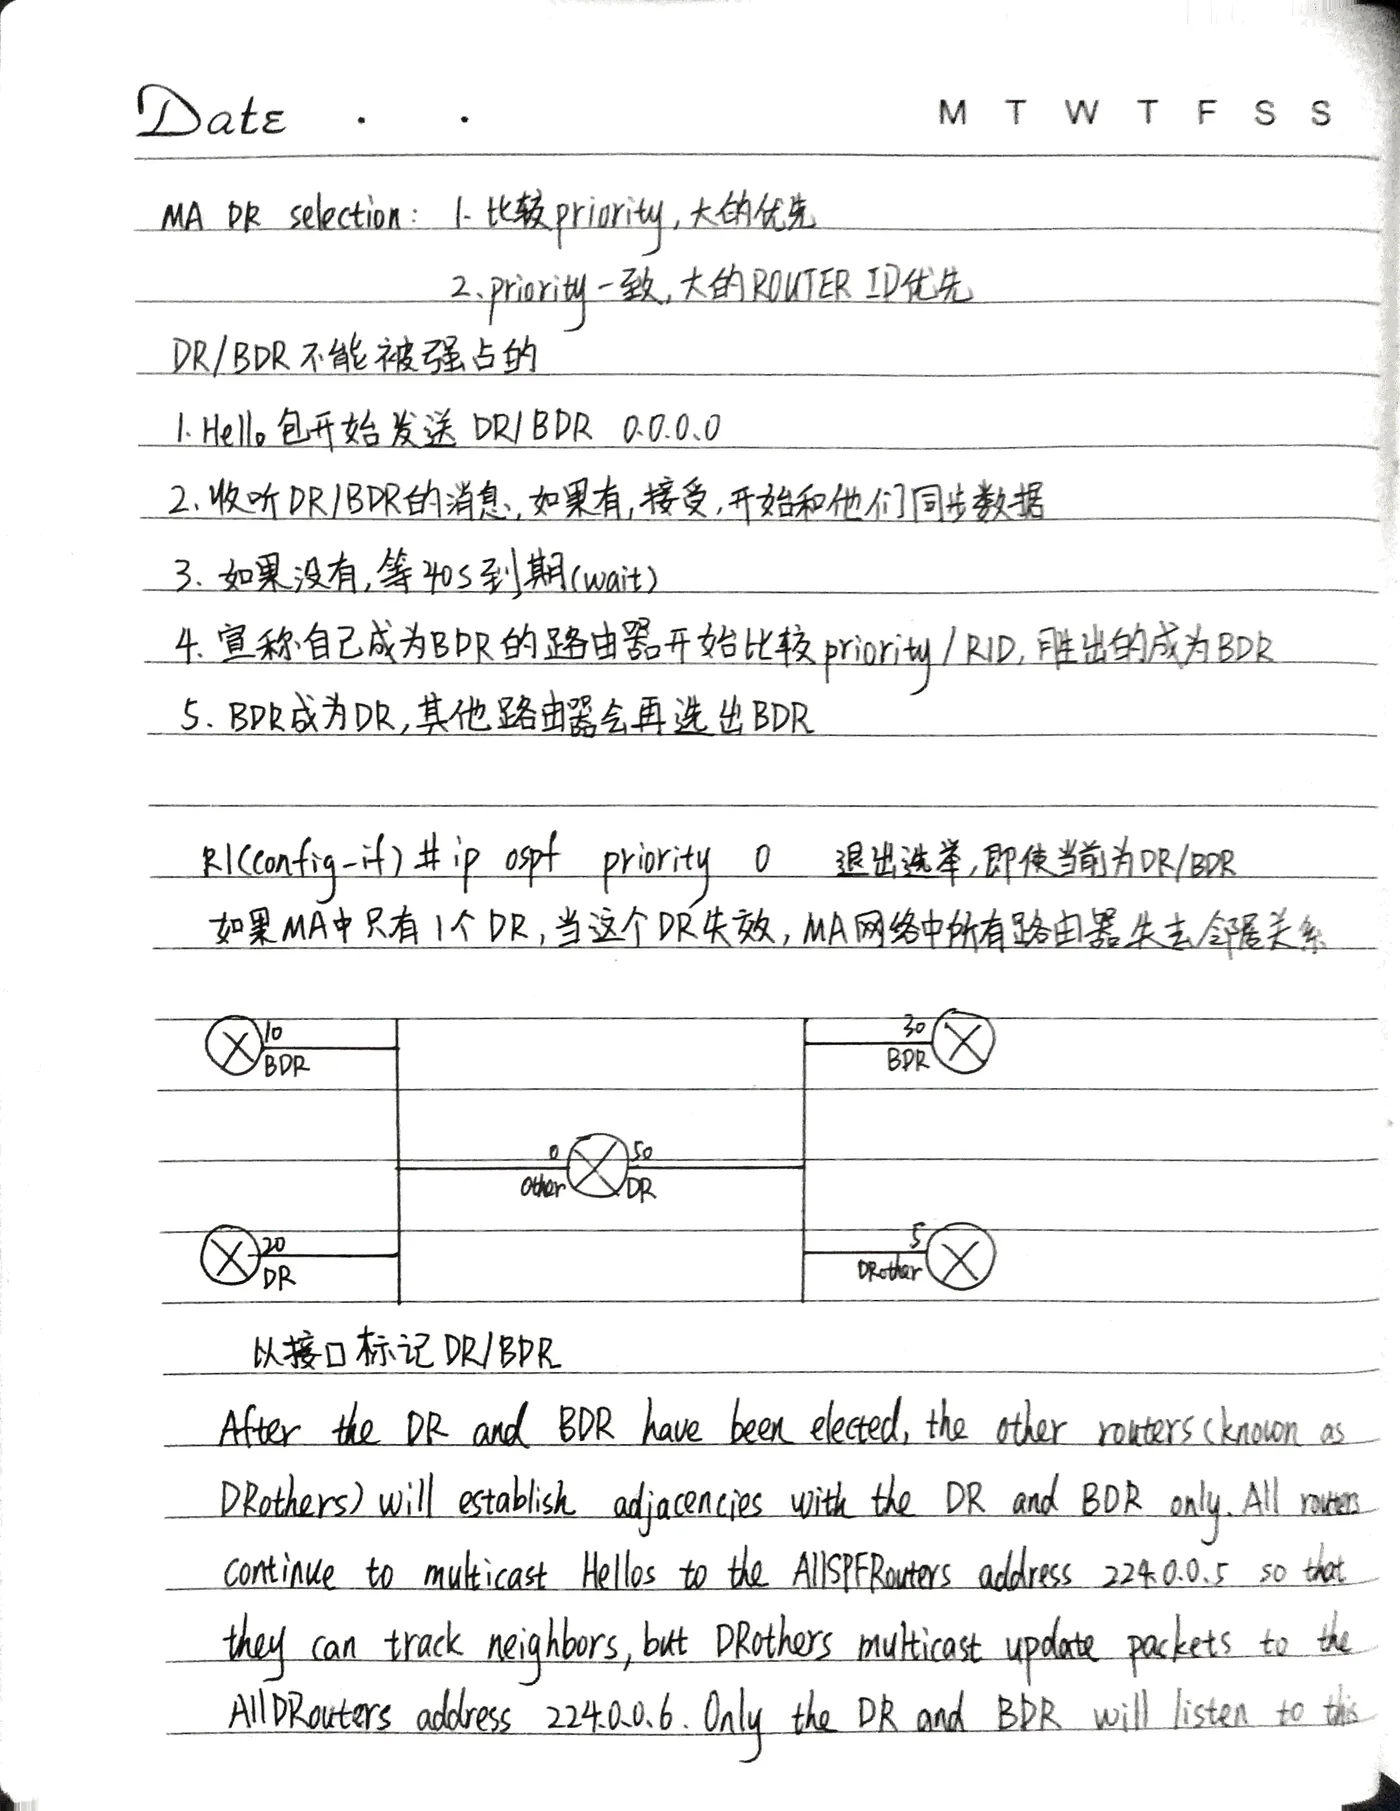 Date . .
M T W T F S S
MA DR selection: 1. 比较priority,大的优先
2、priority一致,大的ROUTER ID优先
DR/BDR不能被强占的
1.Hello包开始发送 DR/BDR 0.0.0.0
2、收听DR/BDR的消息,如果有,接受,开始和他们同步数据
3. 如果没有,等40s到期(wait)
4. 宣称自己成为BDR的路由器开始比较priority/RID,胜出的成为BDR
5. BDR成为DR,其他路由器会再选出BDR
R1(config-if)#ip ospf priority 0 退出选举,即使当前为DR/BDR
如果MA中只有1个DR,当这个DR失效,MA网络中所有路由器失去邻居关系
10
BDR
30
BDR
0
Other
50
DR
20
DR
5
DRother
以接口标记DR/BDR
After the DR and BDR have been elected, the other routers(known as
DRothers) will establish adjacencies with the DR and BDR only. All routers
continue to multicast Hellos to the AllSPFRouters address 224.0.0.5 so that
they can track neighbors, but DRothers multicast update packets to the
AllDRouters address 224.0.0.6. Only the DR and BDR will listen to this